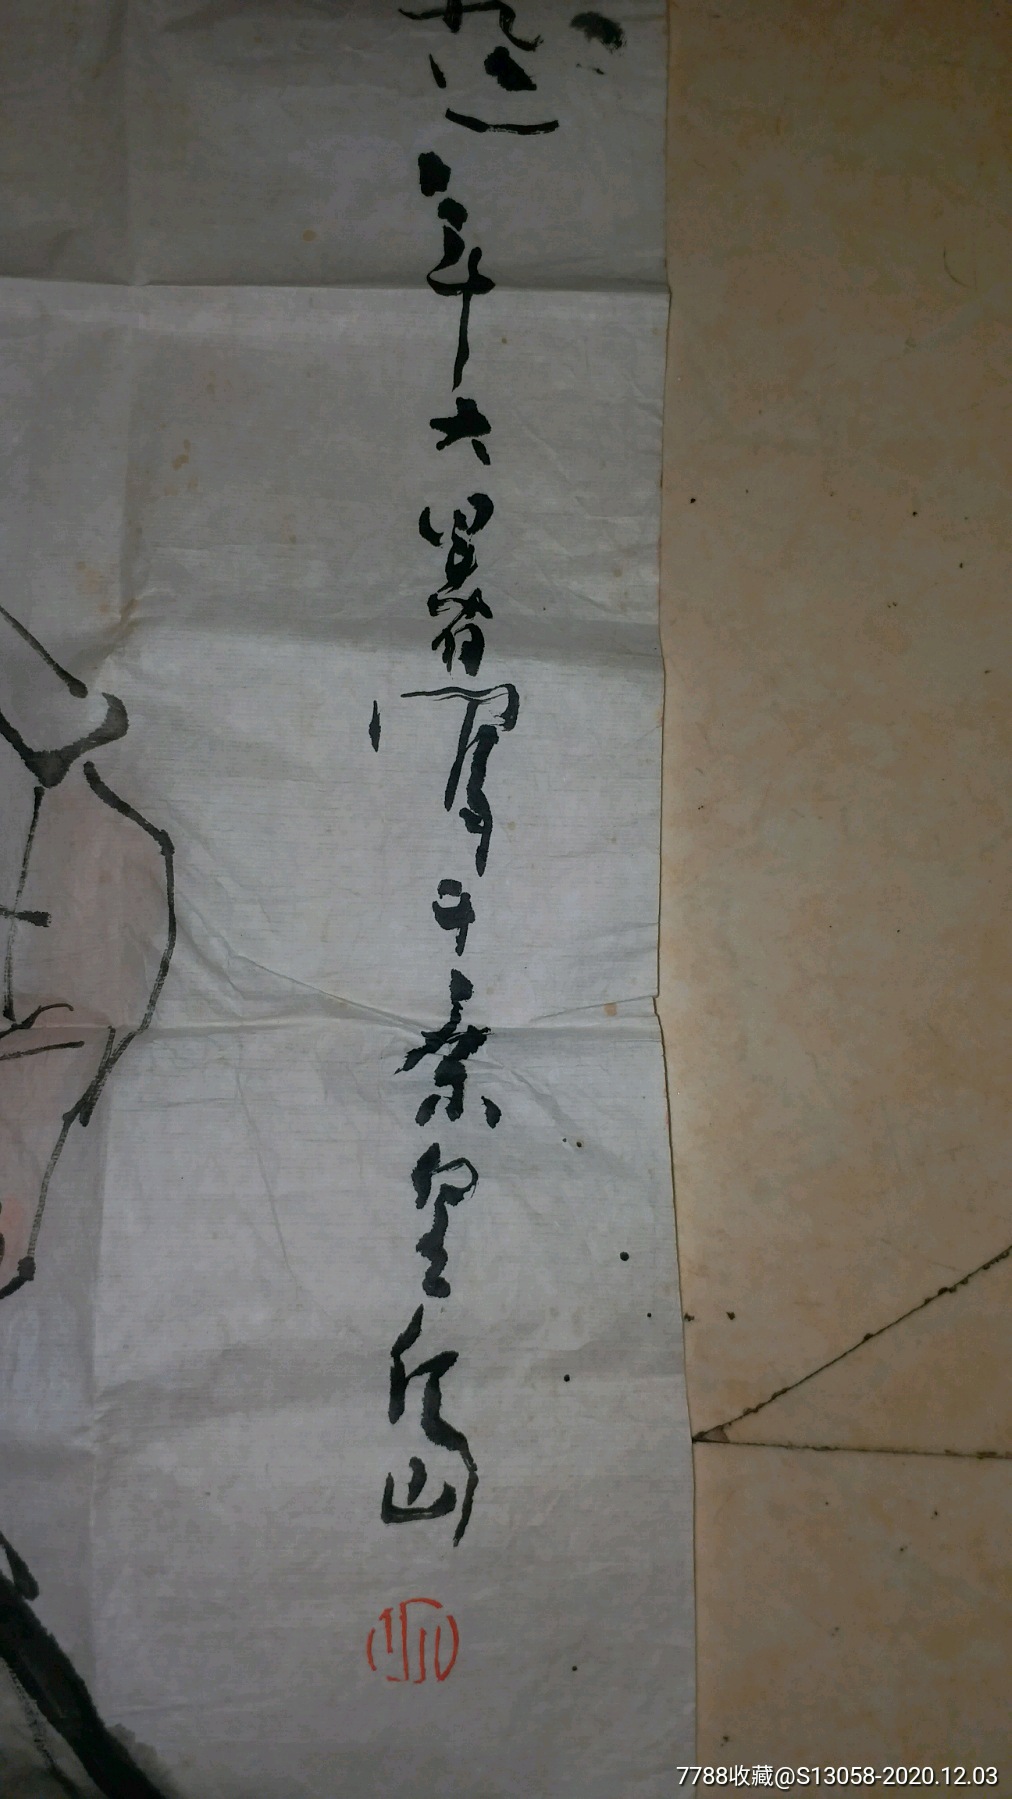 九六年大暑写于秦皇岛
7788收藏@S13058-2020.12.03